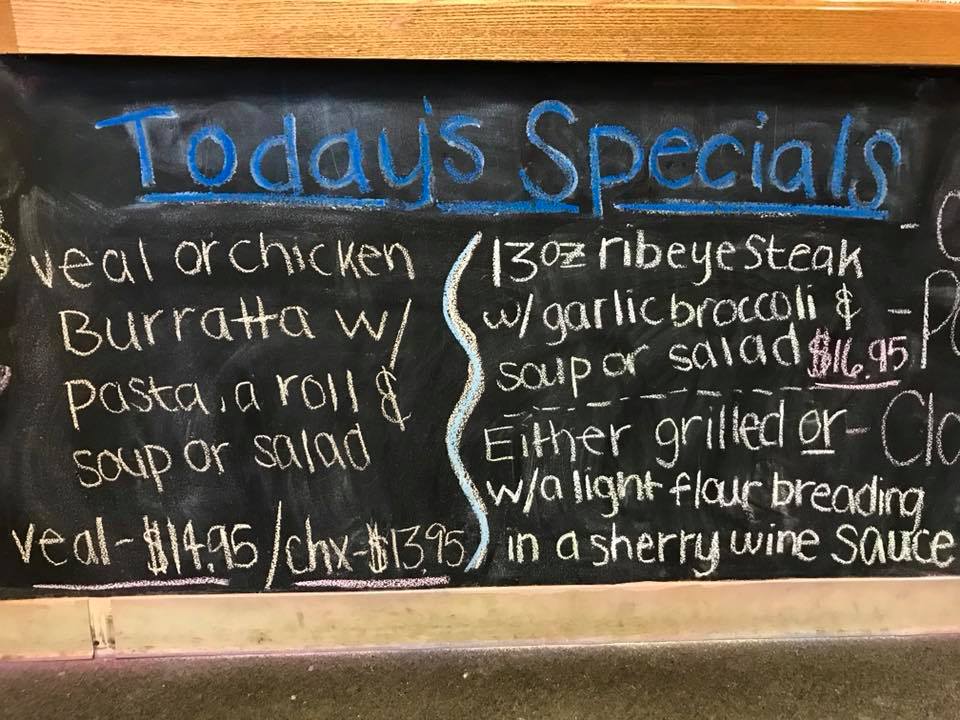 Today's Specials
veal or chicken
Burratta w/
pasta, a roll &
soup or salad
veal - $14.95 / chx - $13.95
13oz ribeye steak
w/ garlic broccoli &
soup or salad $16.95
Either grilled or
w/a light flour breading
in a sherry wine sauce